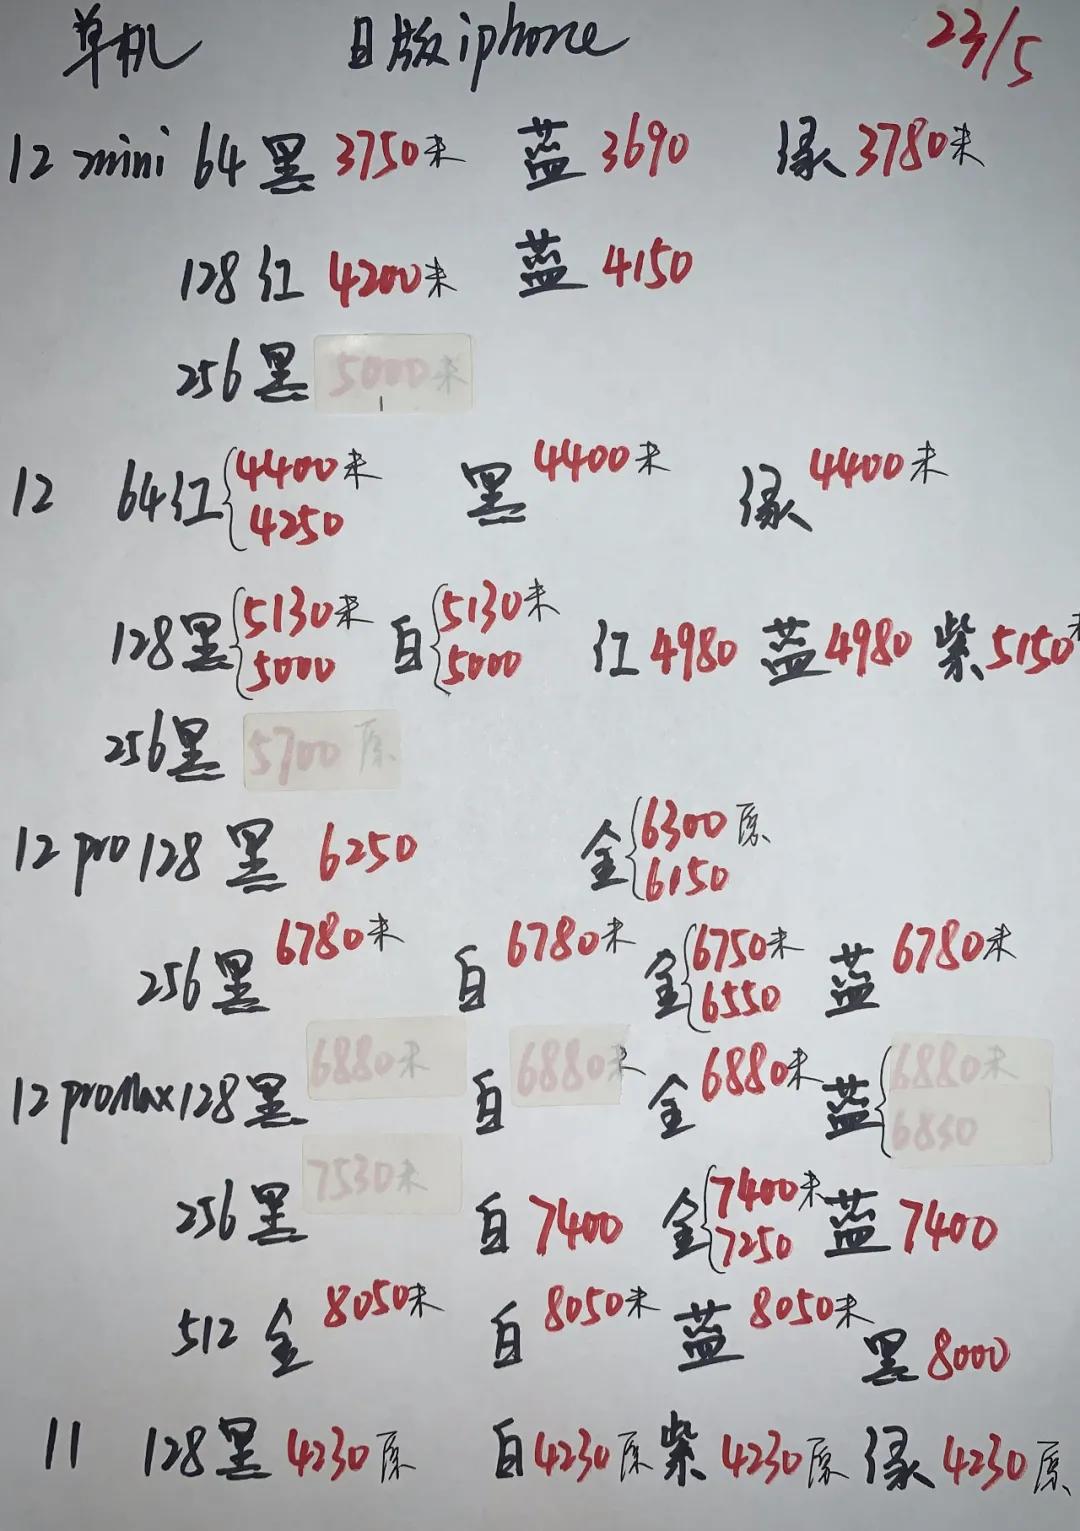 单机 日版iphone 23/5
12 mini 64黑 3750未 蓝 3690 绿 3780未
128红 4200未 蓝 4150
256黑 5000未
12 64红 4400未 4250 黑 4400未 绿 4400未
128黑 5130未 5000 白 5130未 5000 红 4980 蓝 4980 紫 5150未
256黑 5700原
12 pro 128 黑 6250 金 6300原 6150
256黑 6780未 白 6780未 金 6750未 6550 蓝 6780未
12 proMax 128黑 6880未 白 6880未 金 6880未 蓝 6880未 6850
256黑 7530未 白 7400 金 7400未 7250 蓝 7400
512 金 8050未 白 8050未 蓝 8050未 黑 8000
11 128黑 4230原 白 4230原 紫 4230原 绿 4230原